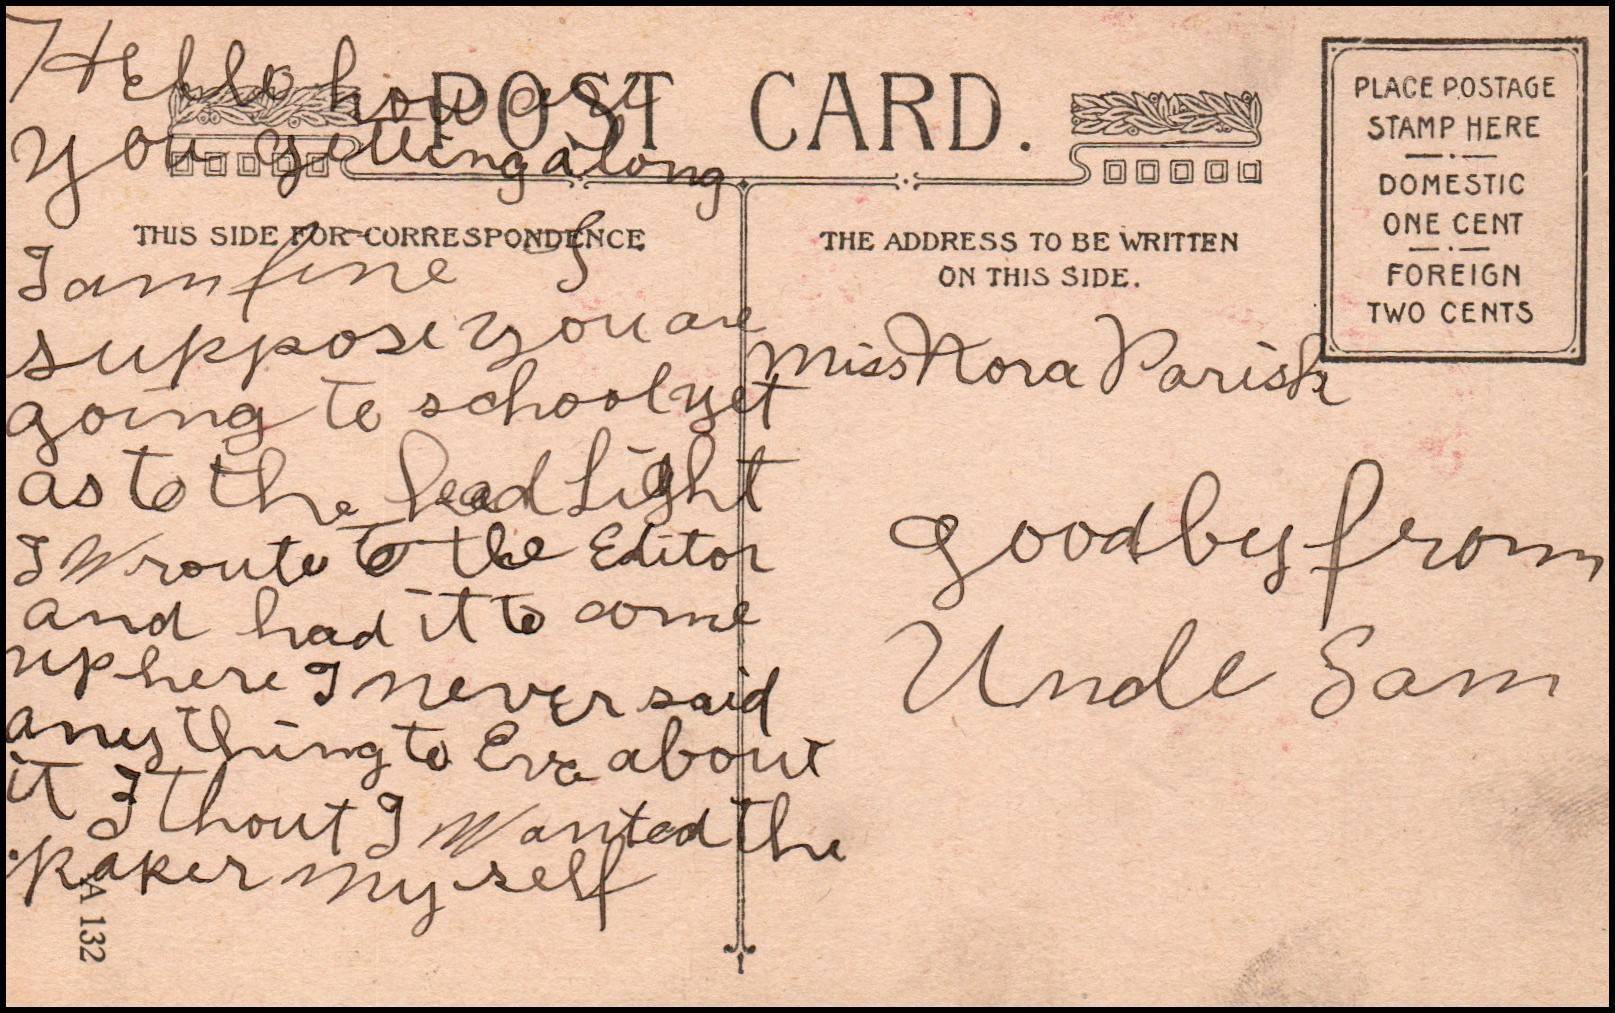 POST CARD.
THIS SIDE FOR CORRESPONDENCE
THE ADDRESS TO BE WRITTEN
ON THIS SIDE.
PLACE POSTAGE
STAMP HERE
DOMESTIC
ONE CENT
FOREIGN
TWO CENTS
Hello how are
you getting along
I am fine I
suppose you are
going to school yet
as to the head Light
I Wroute to the Editor
and had it to come
up here I never said
any thing to Eva about
it I thout I Wanted the
paper my self
Miss Nora Parish
goodby from
Uncle Sam
A 132